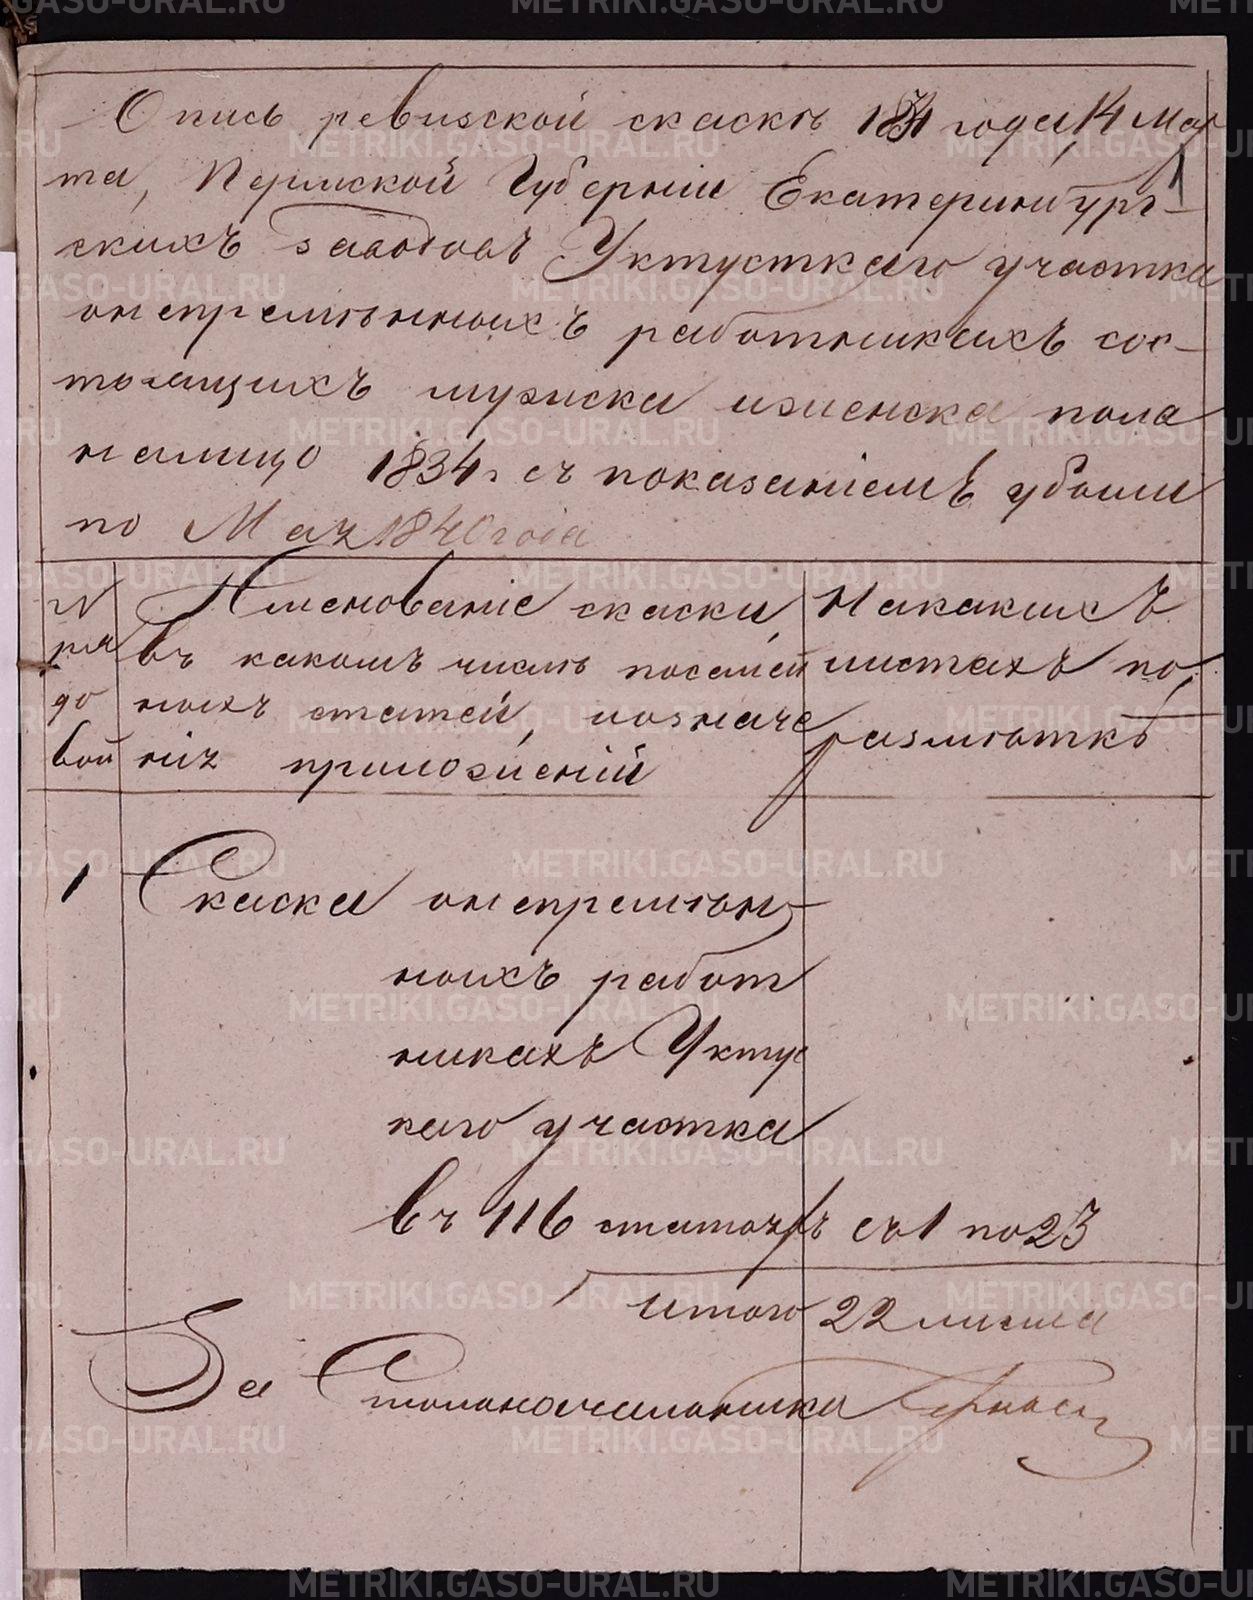 Опись ревизской скаскѣ 1834 года 14 Мар
1
та, Пермской Губерніи Екатеринбург-
скихъ заводовъ Уктусткаго участка
онепремѣнныхъ работникахъ сос-
тоящихъ мужска иженска пола
налицо 1834г съ показаніемъ убыли
по Маѧ 1840 года
№ рядовой
Именованіе скаски,
въ какомъ числѣ посемей
ныхъ статей, иозначе
ніѧ приложеній
Накакихъ
листахъ по
размѣткѣ
1 Скаска онепремѣн-
ныхъ работ
никахъ Уктус
каго участка
въ 116 статьяхъ съ 1 по 23
итого 22 листа
За Столоначальника
METRIKI.GASO-URAL.RU